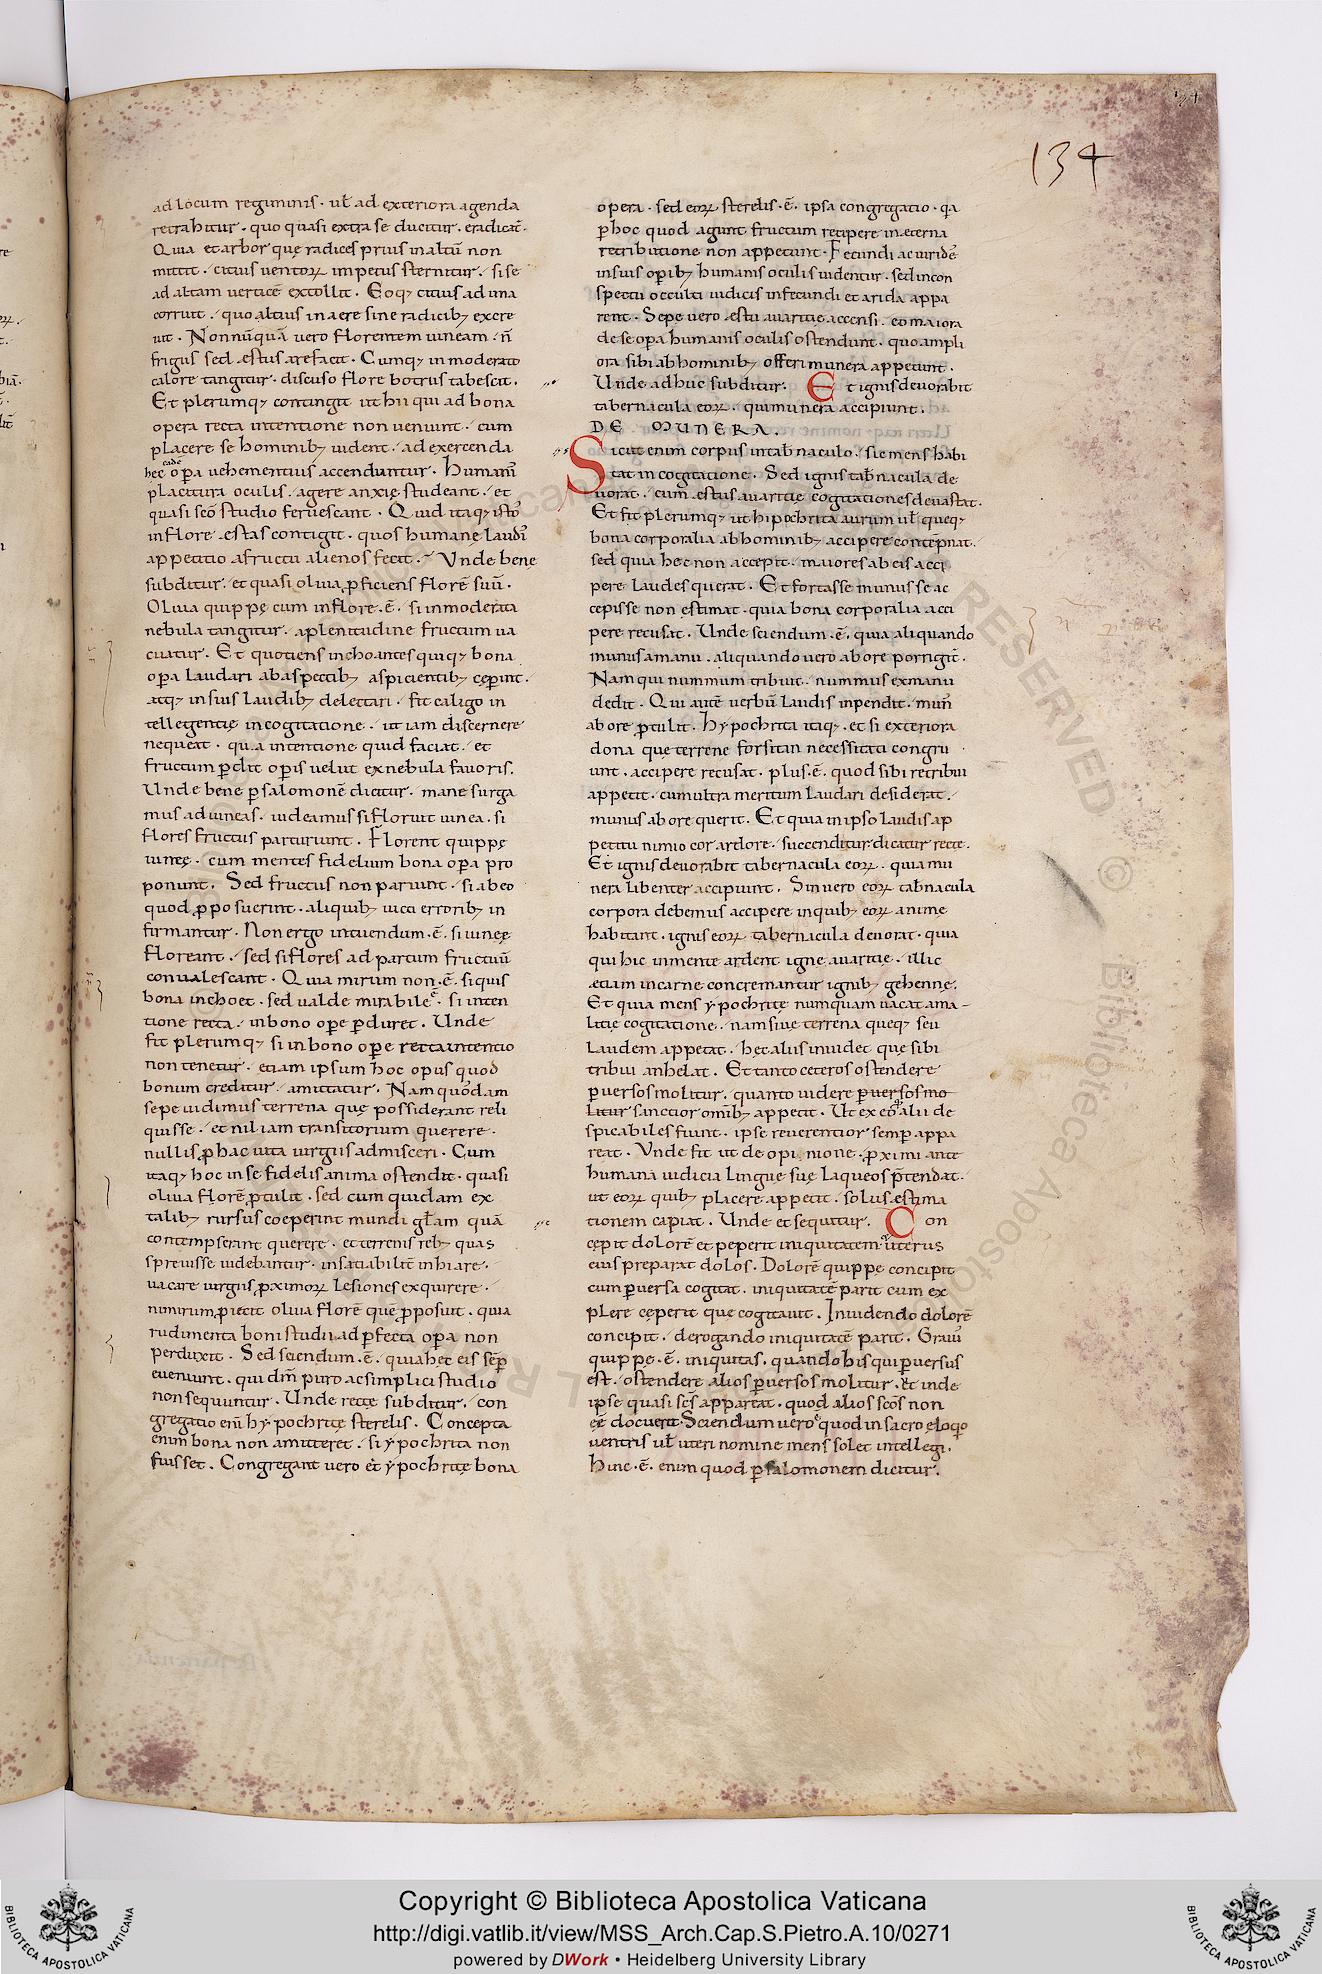 134
ad locum regiminis · ul̄ ad exteriora agenda
retrahitur · quo quasi extra se ducitur · eradicat᷑ ·
Quia et arbor quę radices prius in altū non
mittit · citius uentoꝝ impetus sternitur · si se
ad altam verticē extollit · Eoqꝫ citius ad una
corruit · quo altius in aere sine radicibꝫ excre
uit · Nonnūquā uero florentem uineam · n̄
frigus sed ęstus arefacit · Cumqꝫ inmoderato
calore tangitur · discuso flore botrus tabescit ·
Et plerumqꝫ contingit ut hii qui ad bona
opera recta intentione non ueniunt · cum
placere se hominibꝫ uident · ad exercenda
hec eadē oꝑa uehementius accenduntur · Humanis̄
placitura oculis · agere anxię studeant · et
quasi scō studio feruescant · Quid itaqꝫ isto᷑
in flore · ęstas contigit · quos humanę laudis̄
appetitio a fructu alienos fecit · Unde bene
subditur · et quasi oliua ꝓficiens florē suū ·
Oliua quippę cum in flore · ē · si inmoderata
nebula tangitur · a plenitudine fructum ua
cuatur · Et quotiens inchoantes quiqꝫ bona
oꝑa laudari ab aspectibꝫ aspicientibꝫ cęperint ·
atqꝫ in suis laudibꝫ delectari · fit caligo in
tellegentię in cogitatione · ut iam discernere
nequeat · qua intentione quid faciat · et
fructum ꝑdit oꝑis uelut ex nebula fauoris.
Unde bene ꝑ salomonē dicitur · mane surga
mus ad uineas · uideamus si floruit uinea · si
flores fructus parturiunt · Florent quippę
uineę · cum mentes fidelium bona oꝑa pro
ponunt · Sed fructus non pariunt · si ab eo
quod ꝓposuerint · aliquibꝫ uicti erroribꝫ in
firmantur · Non ergo intuendum · ē · si uineę
floreant · sed si flores ad partum fructuū
conualescant · Quia mirum non · ē · si quis
bona inchoet · sed ualde mirabile ē · si inten
tione recta · in bono oꝑe ꝑduret · Unde
fit plerumqꝫ si in bono oꝑe recta intentio
non tenetur · etiam ipsum hoc opus quod
bonum creditur · amittatur · Nam quosdam
sepe uidimus terrena quę possiderant reli
quisse · et nil iam transitorium querere ·
nullis ꝓ hac uita iurgiis admisceri · Cum
itaqꝫ hoc in se fidelis anima ostendit · quasi
oliua florē ꝓtulit · sed cum quidam ex
talibꝫ rursus coeperint mundi gl̄am quā
contempserant querere · et terrenis rebꝫ quas
spreuisse uidebantur · insatiabilitē inhiare ·
uacare iurgiis ꝓximoꝝ lesiones exquirere ·
nimirum ꝓiecit oliua florē que ꝓposuit · quia
rudimenta boni studii ad ꝑfecta oꝑa non
perduxit · Sed sciendum · ē · quia hęc eis sēꝑ
eueniunt · qui dm̄ puro ac simplici studio
non sequuntur · Unde recte subditur · con
gregatio eni᷑ hypochritę sterelis · Concepta
enim bona non amitteret · si ypochrita non
fuisset · Congregant uero et ypochritę bona
opera · sed eoꝝ sterelis · ē · ipsa congregatio · qa
ꝑ hoc quod agunt fructum recipere in ęterna
retributione non appetunt · Fecundi ac uiridēs
in suis oꝑibꝫ humanis oculis uidentur · sed in con
spectu occulti iudicis infecundi et aridi appa
rent · Sepe uero ęstu auaritię accensi · eo maiora
de se oꝑa humanis oculis ostendunt · quo ampli
ora sibi ab hominibꝫ offeri munera appetunt ·
Unde adhuc subditur · Et ignis deuorabit
tabernacula eoꝝ · qui munera accipiunt ·
DE MUNERA ·
Sicut enim corpus in tab̄naculo · sic mens habi
tat in cogitatione · Sed ignis tab̄nacula de
uorat · cum ęstus auaritię cogitationes deuastat ·
Et fit plerumqꝫ ut hipochrita aurum ul̄ quęqꝫ
bona corporalia ab hominibꝫ accipere contēpnat ·
sed quia hęc non accepit · maiores ab eis acci
pere laudes querat · Et fortasse munus se ac
cepisse non ęstimat · quia bona corporalia acci
pere recusat · Unde sciendum · ē · quia aliquando
munus a manu · aliquando uero ab ore porrigit᷑ ·
Nam qui nummum tribuit · nummus ex manu
dedit · Qui autē uerbū laudis inpendit · mun᷑
ab ore ꝓtulit · Hypochrita itaqꝫ · et si exteriora
dona quę terrene forsitan necessitati congru
unt · accipere recusat · plus · ē · quod sibi retribui
appetit · cum ultra meritum laudari desiderat ·
munus ab ore querit · Et quia in ipso laudis ap
petitu nimio cor ardore · succenditur dicatur recte ·
Et ignis deuorabit tabernacula eoꝝ · qui a mu
nera libenter accipiunt · Sin uero eoꝝ tab̄nacula
corpora debemus accipere in quibꝫ eoꝝ animę
habitant · ignis eoꝝ tabernacula deuorat · quia
qui hic in mente ardent igne auaritię · illic
ętiam in carne concremantur ignibꝫ gehennę ·
Et quia mens ypochritę numquam uacat a ma-
litię cogitatione · nam siue terrena quęqꝫ seu
laudem appetat · hęc aliis inuidet que sibi
tribui anhelat · Et tanto ceteros ostendere
ꝑuersos molitur · quanto uidere ꝑuersos mo
litur sanctior omibꝫ appetit · Ut ex eo qd̄ alii de
spicabiles fiunt · ipse reuerentior semꝑ appa
reat · Unde fit ut de opinione · ꝓximi ante
humana iudicia linguę suę laqueos p̄tendat ·
ut eoꝝ quibꝫ placere appetit · solus ęstima
tionem capiat · Unde et sequitur · Con
cepit dolorē et peperit iniquitatem · et uterus
eius preparat dolos · Dolorē quippę concipit
cum ꝑuersa cogitat · iniquitatē parit cum ex
plere cęperit quę cogitauit · Inuidendo dolorē
concipit · derogando iniquitatē parit · Grauis᷑
quippę · ē · iniquitas · quando his qui ꝑuersus
est · ostendere alios ꝑuersos molitur · et inde
ipse quasi scs̄ appareat · quod alios scōs non
eē docuerit · Sciendum uero ē quod in sacro eloqio
uentris ul̄ uteri nomine mens solet intellegi ·
Hinc · ē · enim quod ꝑ salomonem dicitur ·
Copyright © Biblioteca Apostolica Vaticana
http://digi.vatlib.it/view/MSS_Arch.Cap.S.Pietro.A.10/0271
powered by DWork • Heidelberg University Library